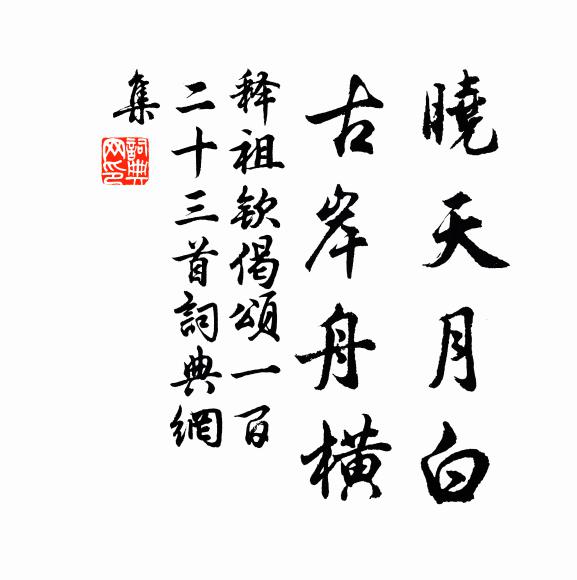 曉天月白
古岸舟橫
释祖欽偈頌一百
二十三首詞典網
集
詞典
网印